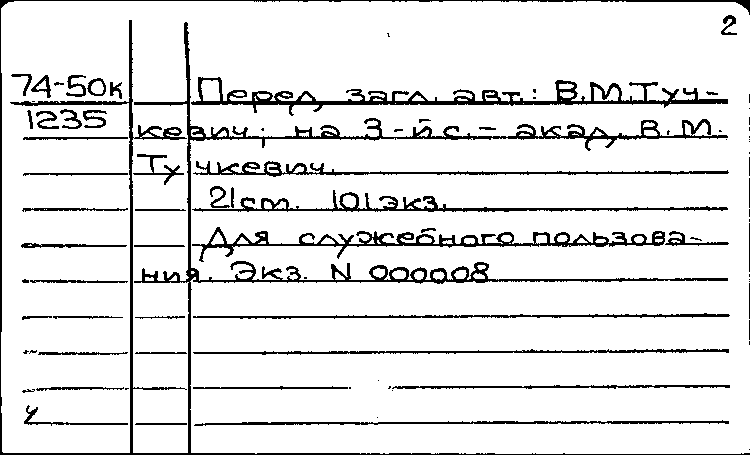 2
74-50к
1235
Перед загл. авт.: В.М.Туч-
кевич; на 3-й с. - акад. В.М.
Тучкевич.
21 ст. 101 экз.
Для служебного пользова-
ния. Экз. N 000008